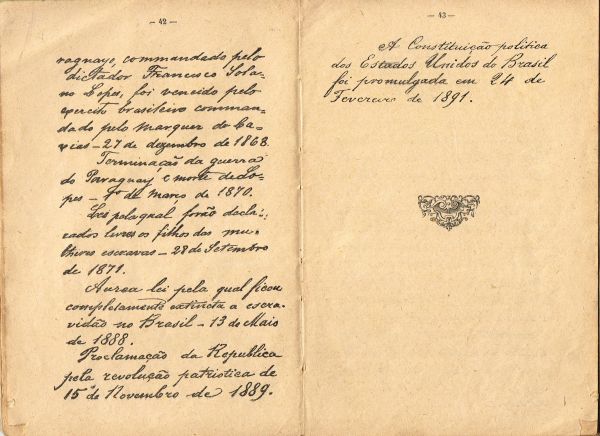 — 42 —
raguayo, commandado pelo
dictador Francisco Sola-
no Lopes, foi vencido pelo
exercito brasileiro comman-
dado pelo Marquez de Ca-
xias — 27 de dezembro de 1868.
Terminação da guerra
do Paraguay e morte de Lo-
pes — 1º de Março de 1870.
Lei pela qual forão decla-
rados livres os filhos das mu-
lheres escravas — 28 de Setembro
de 1871.
Aurea lei pela qual ficou
completamente extincta a escra-
vidão no Brasil — 13 de Maio
de 1888.
Proclamação da Republica
pela revolução patriotica de
15 de Novembro de 1889.
— 43 —
A Constituição politica
dos Estados Unidos do Brasil
foi promulgada em 24 de
Fevereiro de 1891.